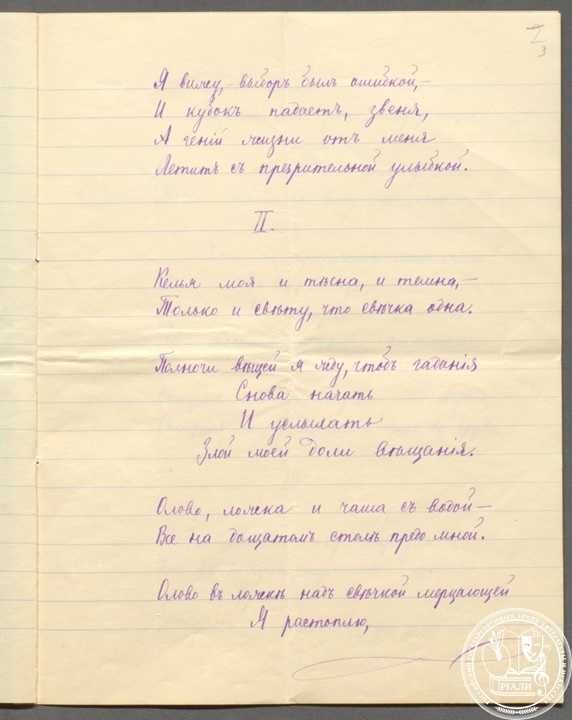 I
3
Я вижу, – выборъ былъ ошибкой, –
И кубокъ падаетъ, звеня,
А геній жизни отъ меня
Летитъ съ презрительной улыбкой.
II.
Келья моя и тѣсна, и темна, –
Только и свѣту, что свѣчка одна.
Полночи вѣщей я жду, чтобъ гаданія
Снова начать
И услыхать
Злой моей доли вѣщанія.
Олово, ложка и чаша съ водой –
Все на дощатомъ столѣ предо мной.
Олово въ ложкѣ надъ свѣчкой мерцающей
Я растоплю,
РОССИЙСКИЙ ГОСУДАРСТВЕННЫЙ АРХИВ ЛИТЕРАТУРЫ И ИСКУССТВА
РГАЛИ